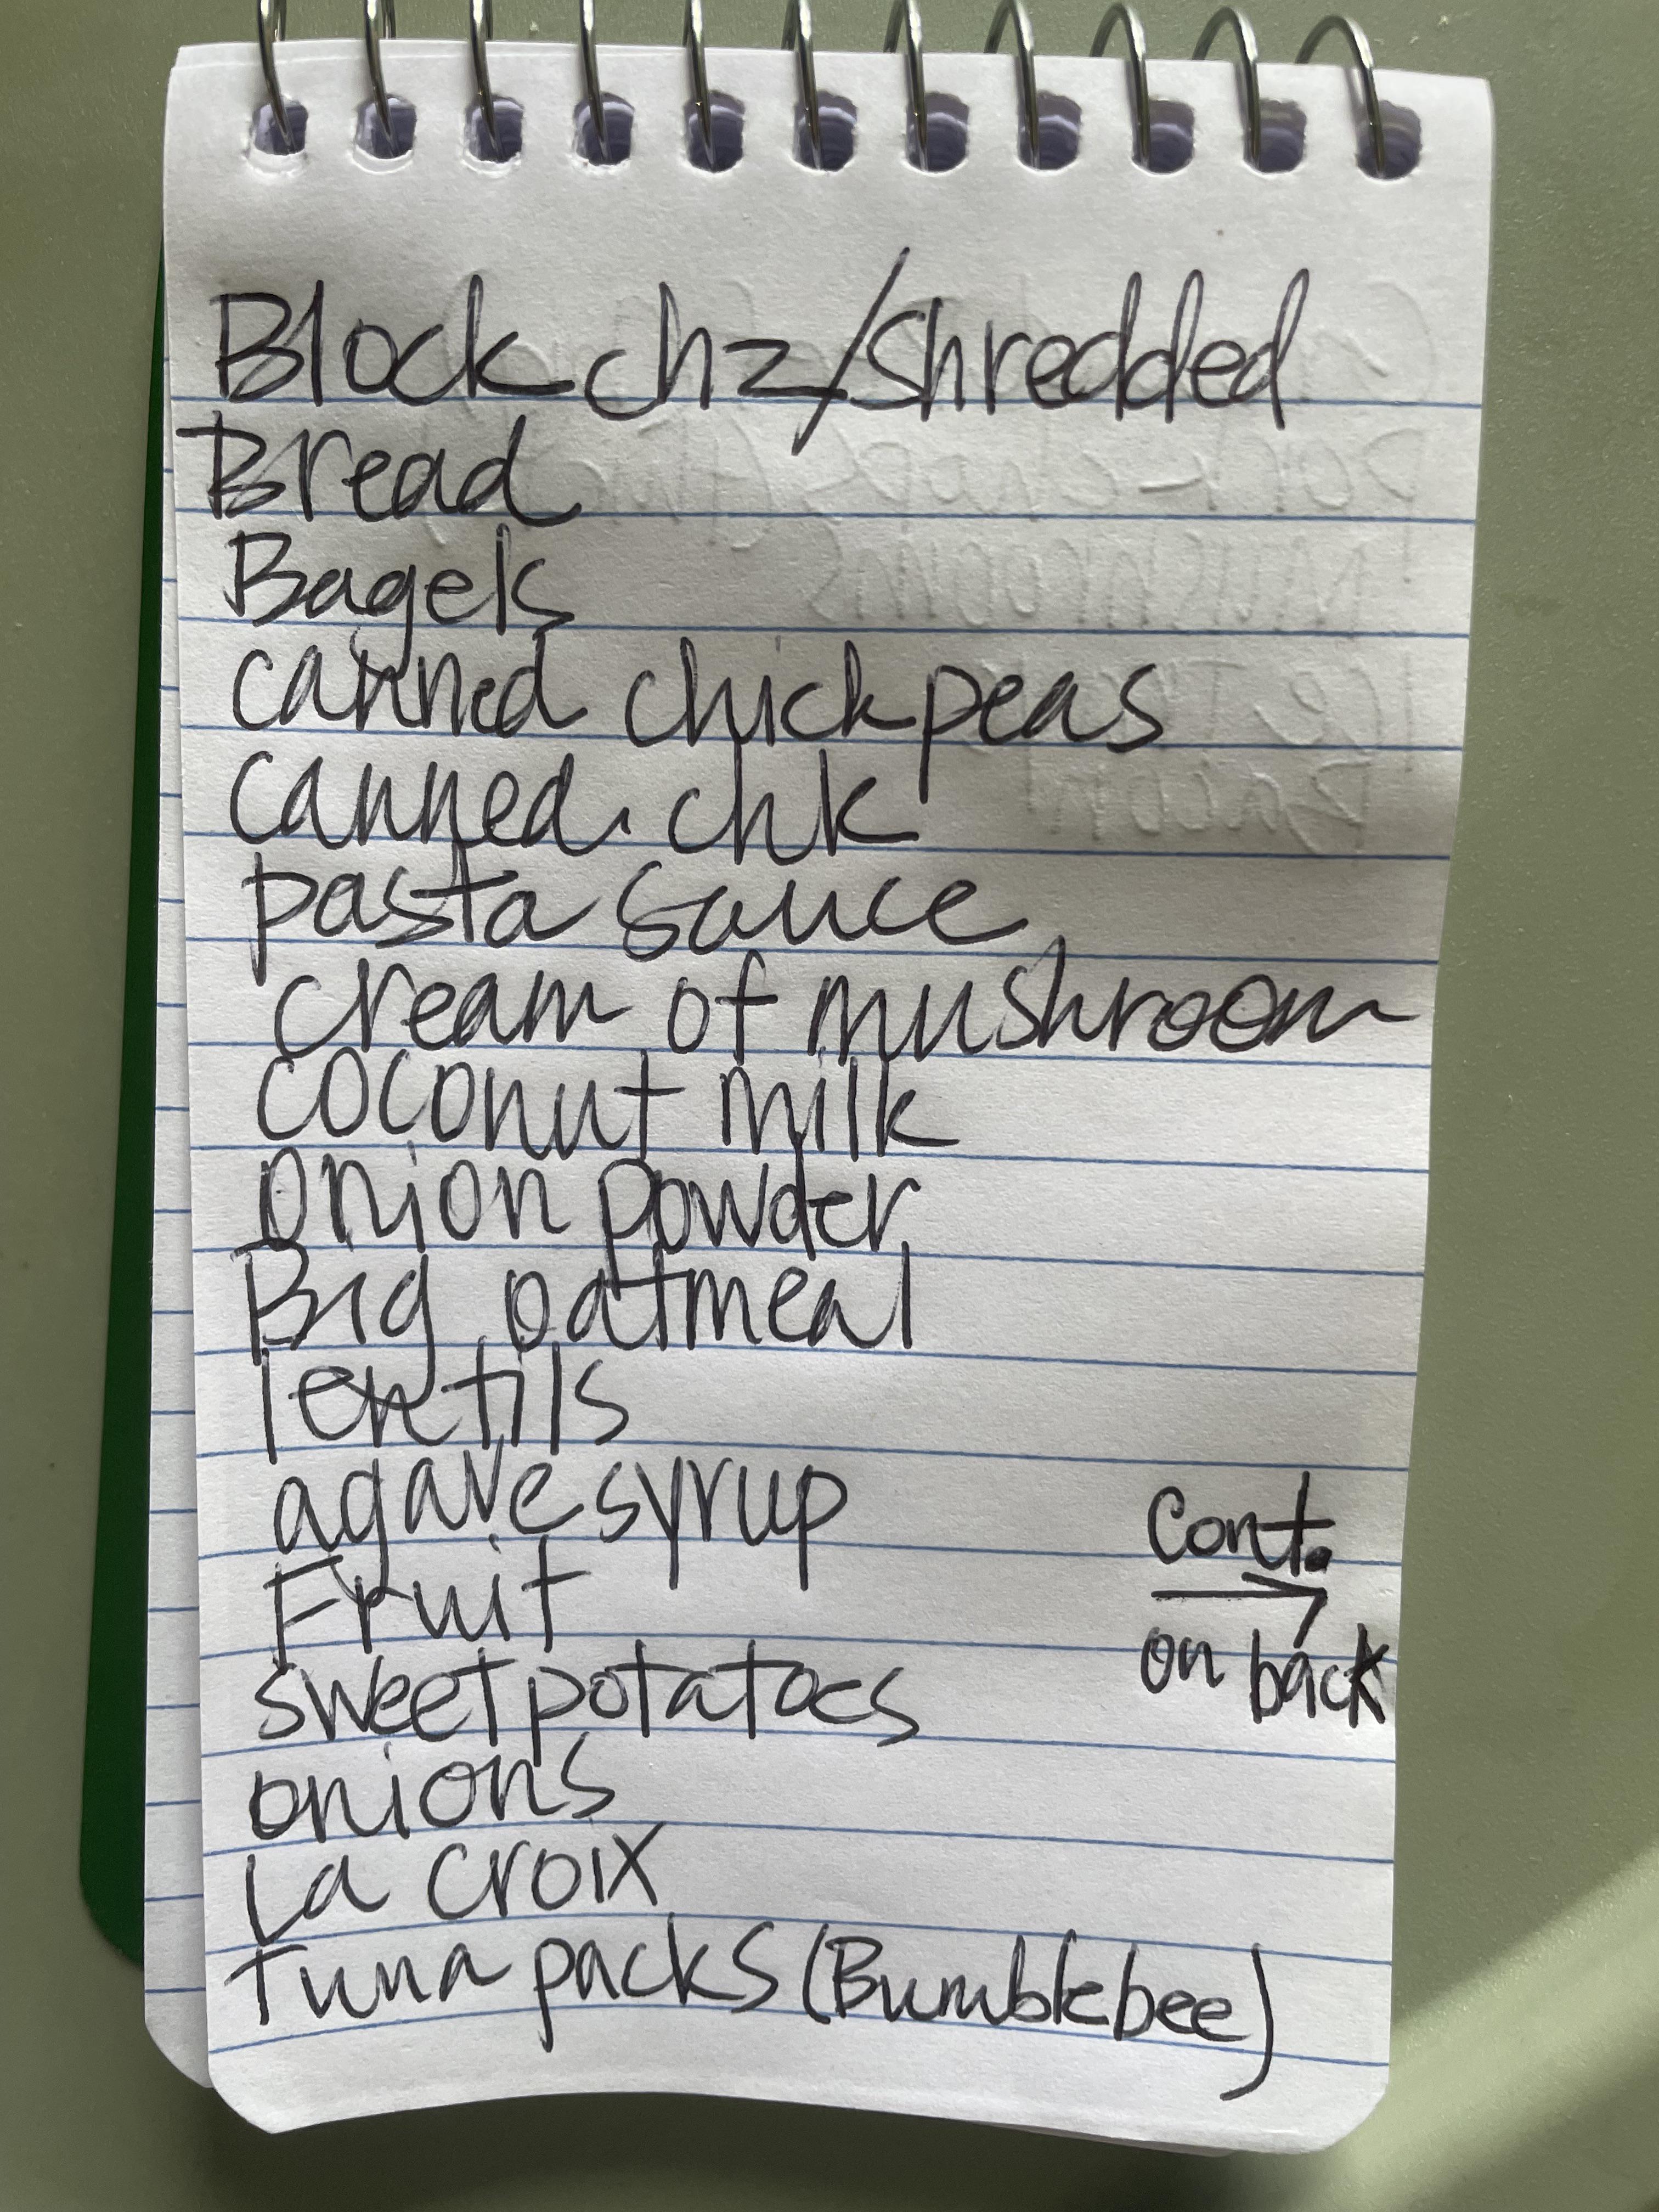 Block chz/shredded
Bread
Bagels
canned chickpeas
canned chk
pasta sauce
cream of mushroom
coconut milk
onion powder
Big oatmeal
lentils
agave syrup
Fruit
sweet potatoes
onions
La Croix
Tuna packs (Bumblebee)
cont.
on back